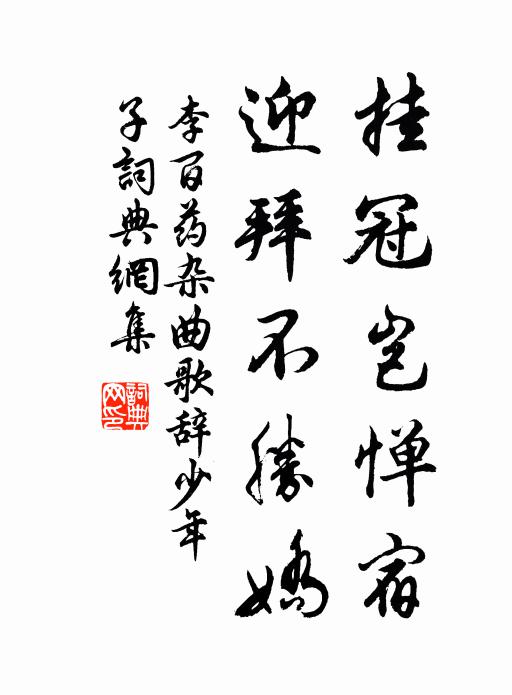 挂冠岂惮宿
迎拜不勝嬌
李百药杂曲歌辞少年
子詞典網集
詞典网印